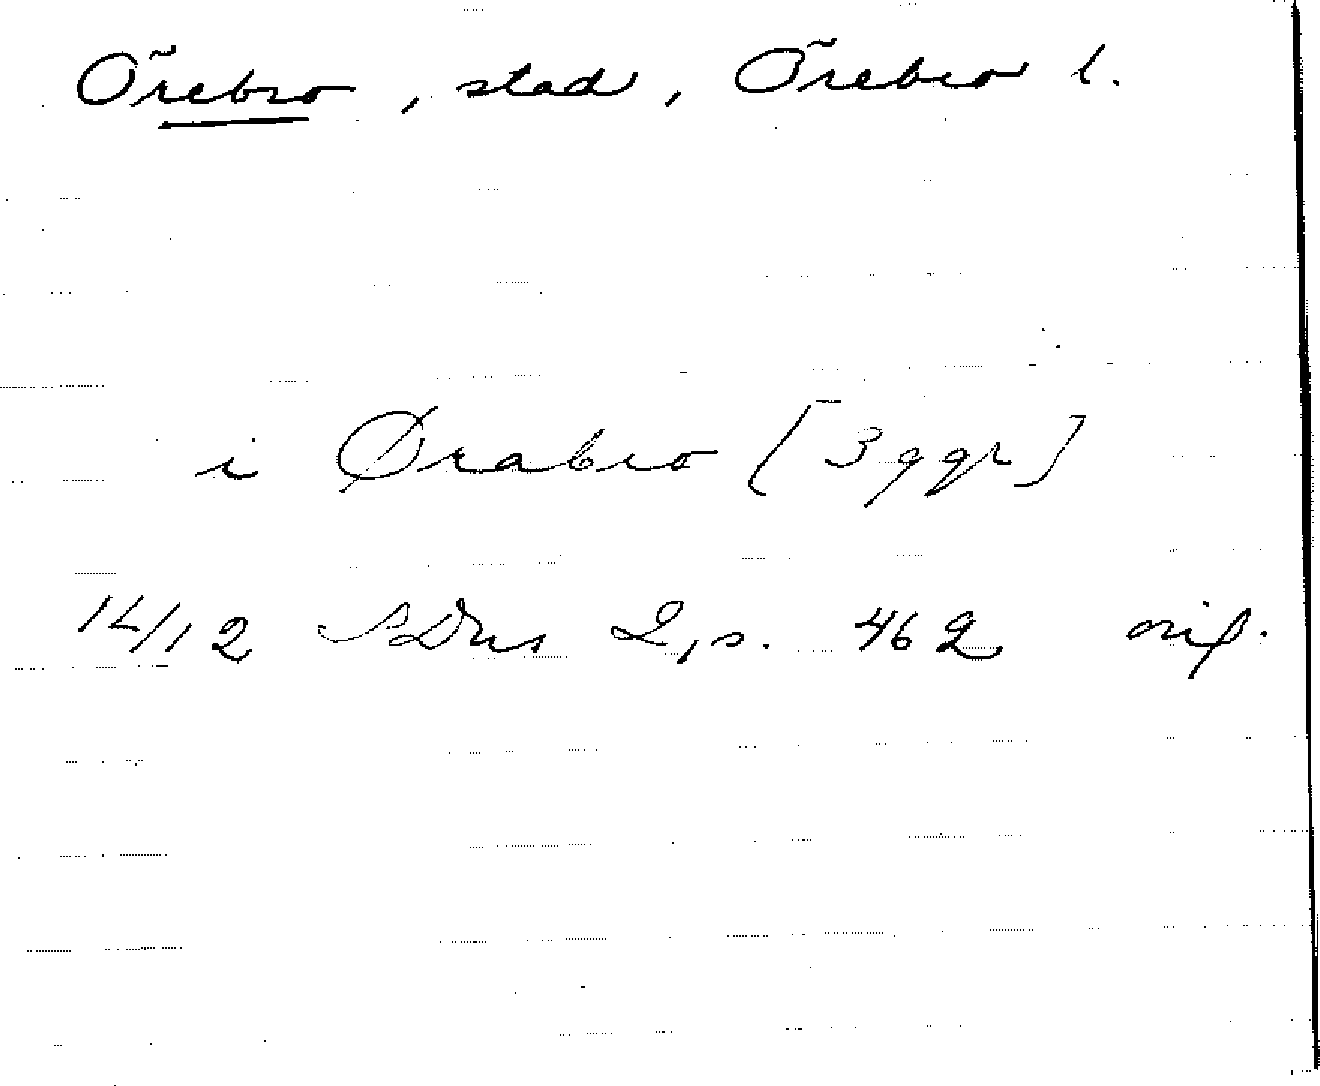 Örebro, stad, Örebro l.
i Ørabro [3 ggr]
1412 SDns 2, s. 462 or.